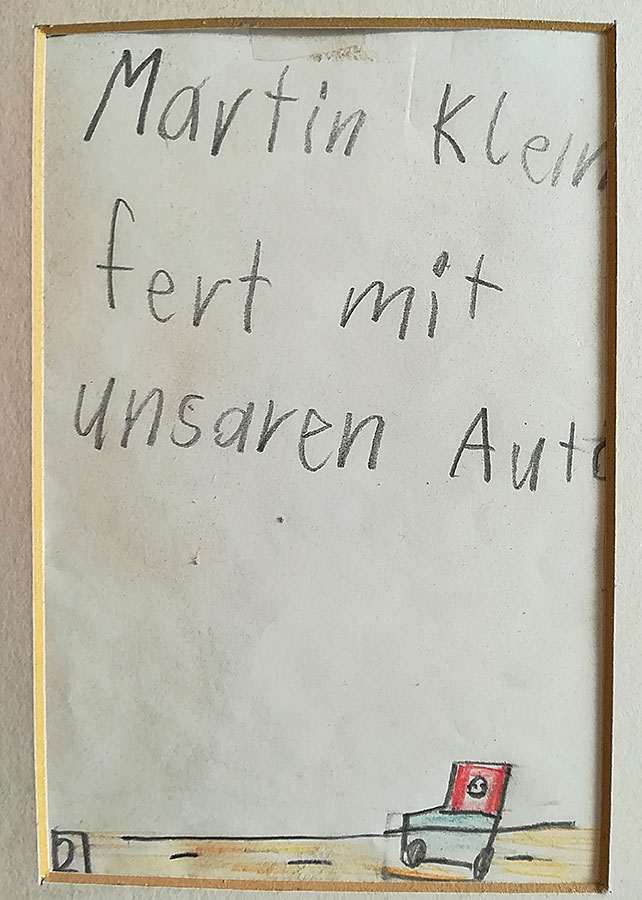 Martin Klein
fert mit
unsaren Auto
2